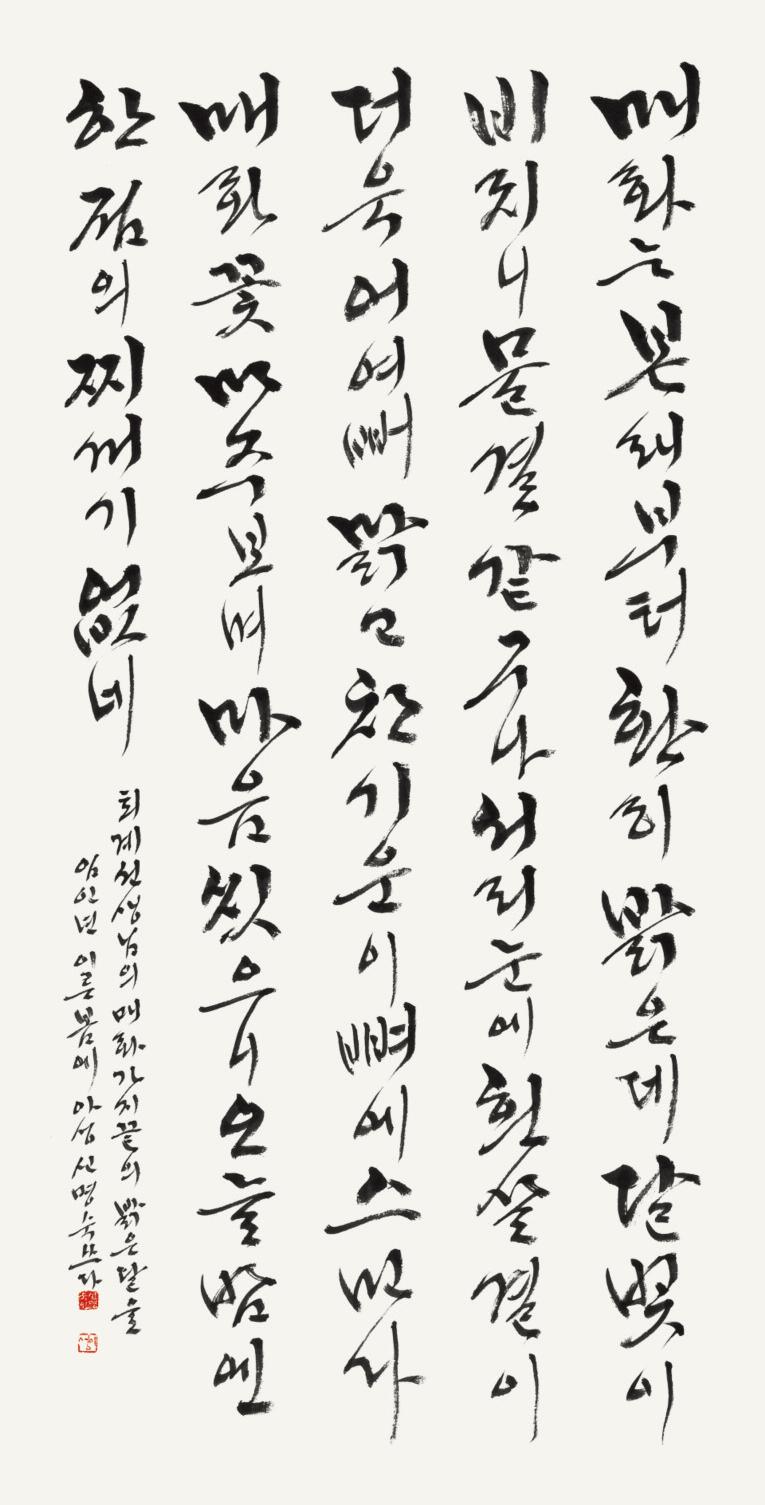 매화는 본래부터 환히 밝은데 달빛이
비치니 물결 같구나 서리 눈에 흰 살결이
더욱 어여뻐 맑고 찬 기운이 뼈에 스민다
매화꽃 마주보며 마음 씻으니 오늘 밤엔
한 점의 찌꺼기 없네
퇴계선생님의 매화가지 끝의 밝은 달을
임인년 이른 봄에 아성 신명숙 쓰다